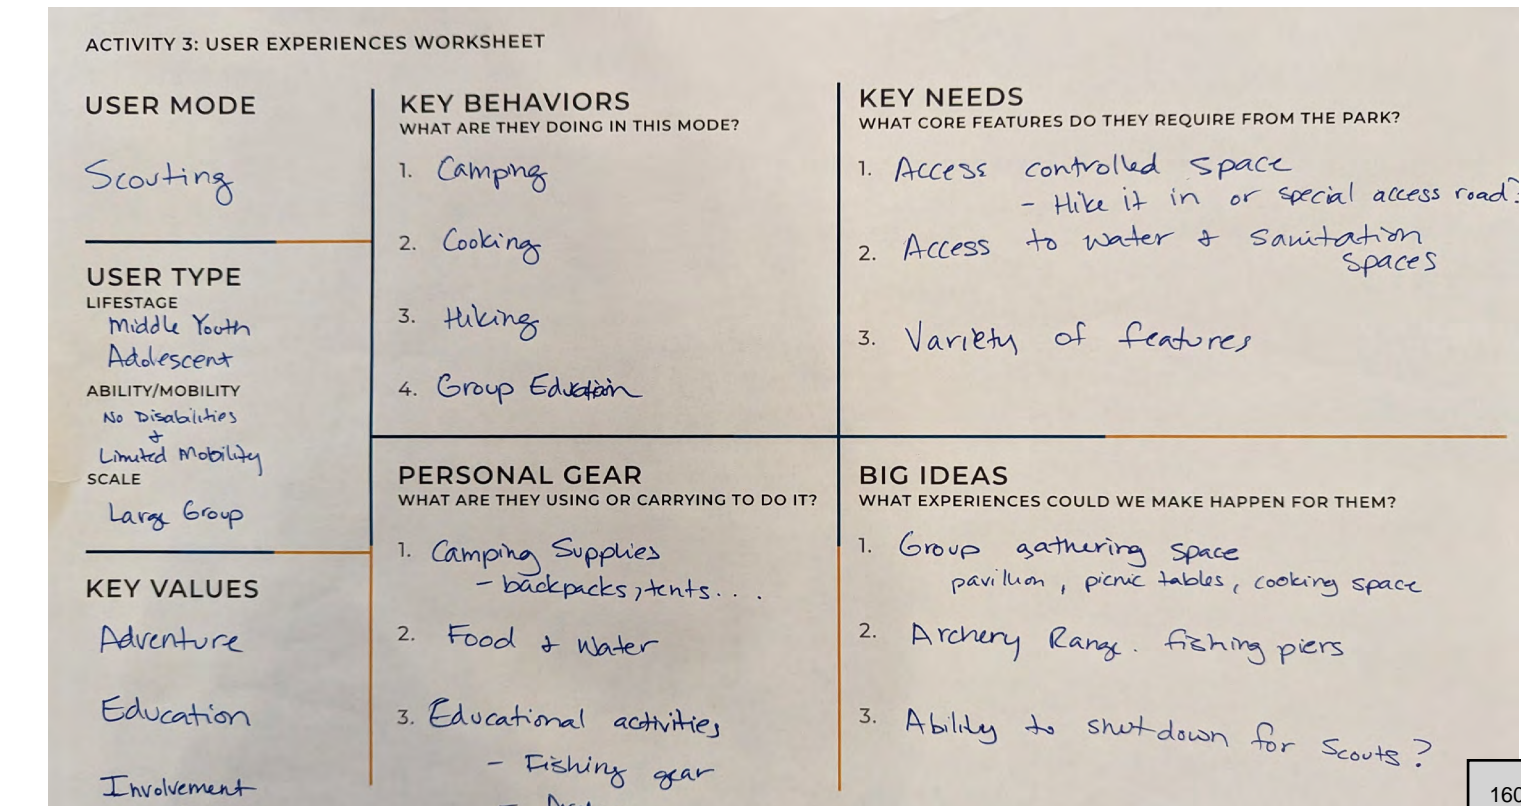 ACTIVITY 3: USER EXPERIENCES WORKSHEET
USER MODE
Scouting
USER TYPE
LIFESTAGE
Middle Youth
Adolescent
ABILITY/MOBILITY
No Disabilities
&
Limited Mobility
SCALE
Large Group
KEY VALUES
Adventure
Education
Involvement
KEY BEHAVIORS
WHAT ARE THEY DOING IN THIS MODE?
1. Camping
2. Cooking
3. Hiking
4. Group Education
PERSONAL GEAR
WHAT ARE THEY USING OR CARRYING TO DO IT?
1. Camping Supplies
- backpacks, tents...
2. Food & Water
3. Educational activities
- Fishing gear
KEY NEEDS
WHAT CORE FEATURES DO THEY REQUIRE FROM THE PARK?
1. Access controlled space
- Hike it in or special access road?
2. Access to water & sanitation
spaces
3. Variety of features
BIG IDEAS
WHAT EXPERIENCES COULD WE MAKE HAPPEN FOR THEM?
1. Group gathering space
pavillion, picnic tables, cooking space
2. Archery Range. fishing piers
3. Ability to shutdown for Scouts?
160